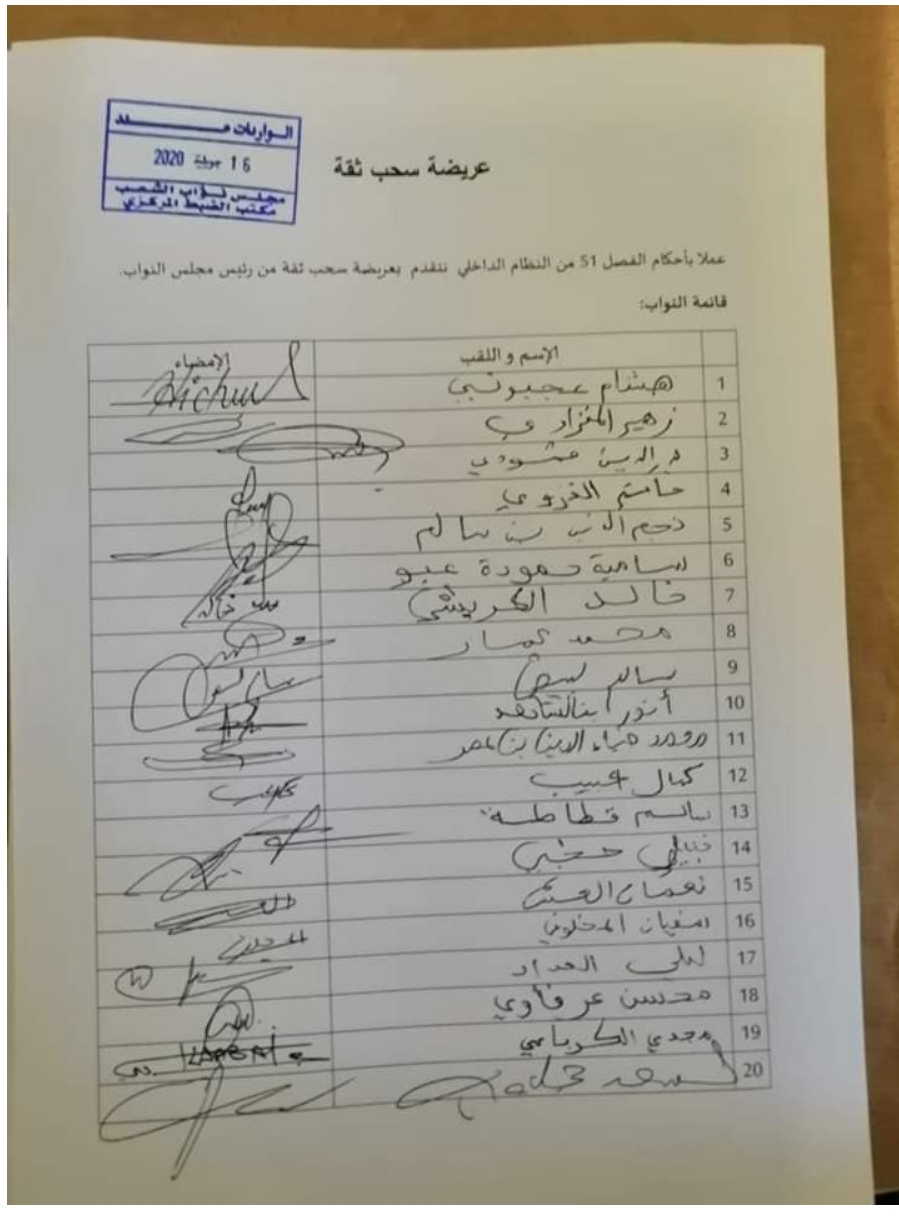 الــواردات عــــدد
16 جويلية 2020
مجلس نواب الشعب
مكتب الضبط المركزي
عريضة سحب ثقة
عملا بأحكام الفصل 51 من النظام الداخلي نتقدم بعريضة سحب ثقة من رئيس مجلس النواب.
قائمة النواب:
الإسم و اللقب الإمضاء
1 هشام عجبوني Hichem
2 زهير المغزاوي
3
4 حاتم
5 نجم الدين بن سالم
6 سامية حمودة عبو
7 خالد الكريشي
8 محمد عمار
9 سالم لبيض
10 أنور بالشاهد
11
12 كمال حبيب
13 باسم
14 نبيل حجي
15 نعمان العش
16 سفيان المخلوفي
17 ليلى الحداد
18 محسن عرفاوي
19 مجدي الكرباعي KARBAI
20